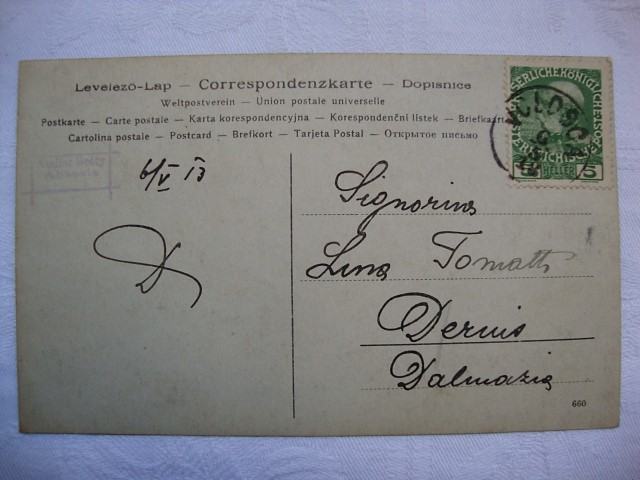 Levelező-Lap — Correspondenzkarte — Dopisnice
Weltpostverein — Union postale universelle
Postkarte — Carte postale — Karta korespondencyjna — Korespondenční listek — Briefkaart
Cartolina postale — Postcard — Brefkort — Tarjeta Postal — Открытое письмо
6/V 13
D
Signorina
Lina Tomatti
Dernis
Dalmazia
660
HELLER
5